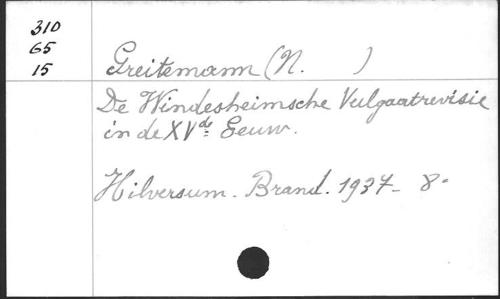 310
65
15
Greitemann (N. )
De Windesheimsche Vulgaatrevisie
in de XVde Eeuw.
Hilversum. Brand. 1937_ 8°